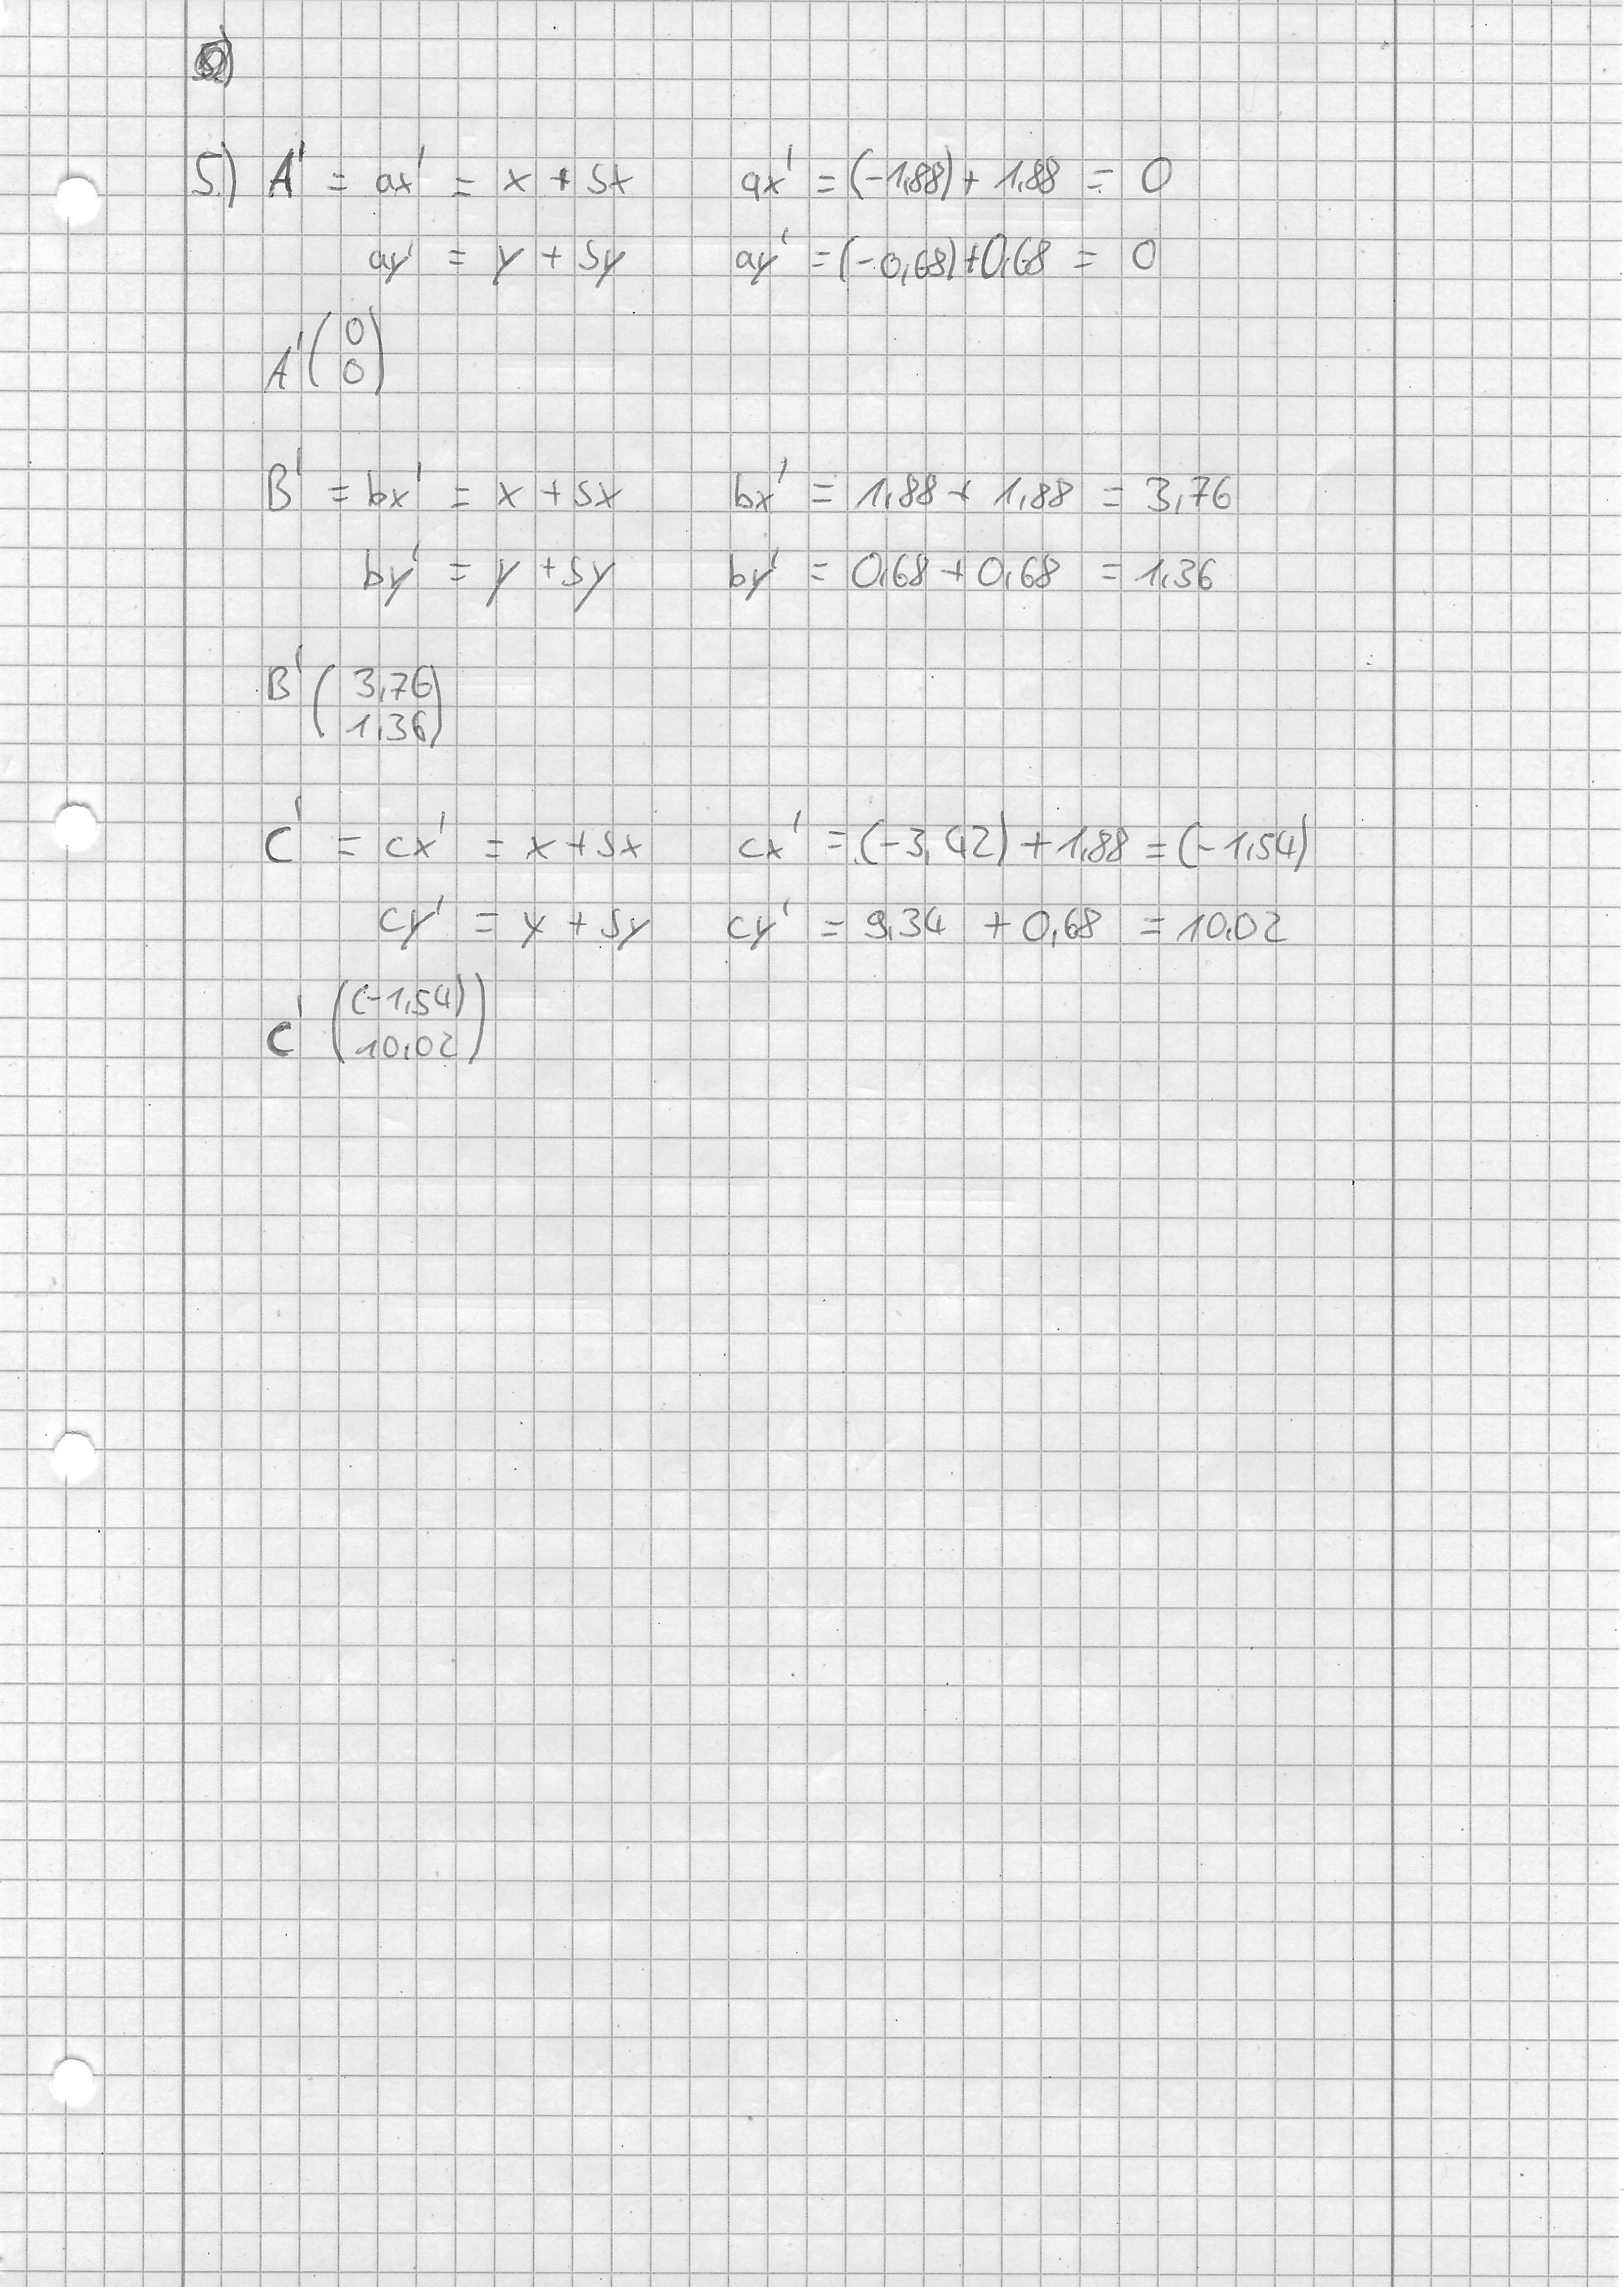 5.) A' = ax' = x + sx ax' = (-1,88) + 1,88 = 0
ay' = y + sy ay' = (-0,68)+0,68 = 0
A' ( 0
0 )
B' = bx' = x + sx bx' = 1,88 + 1,88 = 3,76
by' = y + sy by' = 0,68 + 0,68 = 1,36
B' ( 3,76
1,36 )
C' = cx' = x + sx cx' = (-3,42) + 1,88 = (-1,54)
cy' = y + sy cy' = 9,34 + 0,68 = 10,02
C' ( (-1,54)
10,02 )